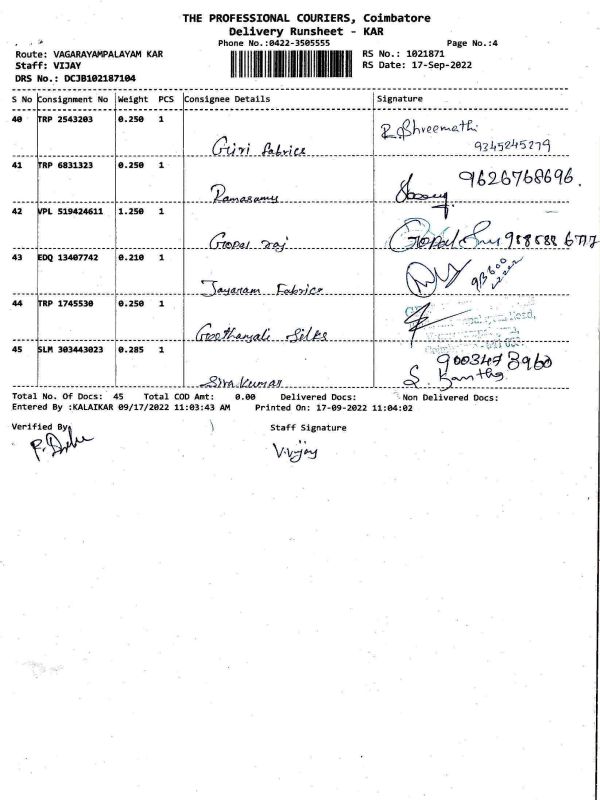 THE PROFESSIONAL COURIERS, Coimbatore
Delivery Runsheet - KAR
Phone No.:0422-3505555 Page No.:4
Route: VAGARAYAMPALAYAM KAR RS No.: 1021871
Staff: VIJAY RS Date: 17-Sep-2022
DRS No.: DCJB102187104
S No Consignment No Weight PCS Consignee Details Signature
40 TRP 2543203 0.250 1
R. Shreemathi
Giri fabrics 9345245279
41 TRP 6831323 0.250 1
Ramasamy 9626768696.
42 VPL 519424611 1.250 1
Gopal raj Gopal
43 EDQ 13407742 0.210 1
Jayaram Fabrics
44 TRP 1745530 0.250 1
Geethanjali Silks
45 SLM 303443023 0.285 1
Siva kumar S.
Total No. Of Docs: 45 Total COD Amt: 0.00 Delivered Docs: Non Delivered Docs:
Entered By :KALAIKAR 09/17/2022 11:03:43 AM Printed On: 17-09-2022 11:04:02
Verified By Staff Signature
V.Vijay